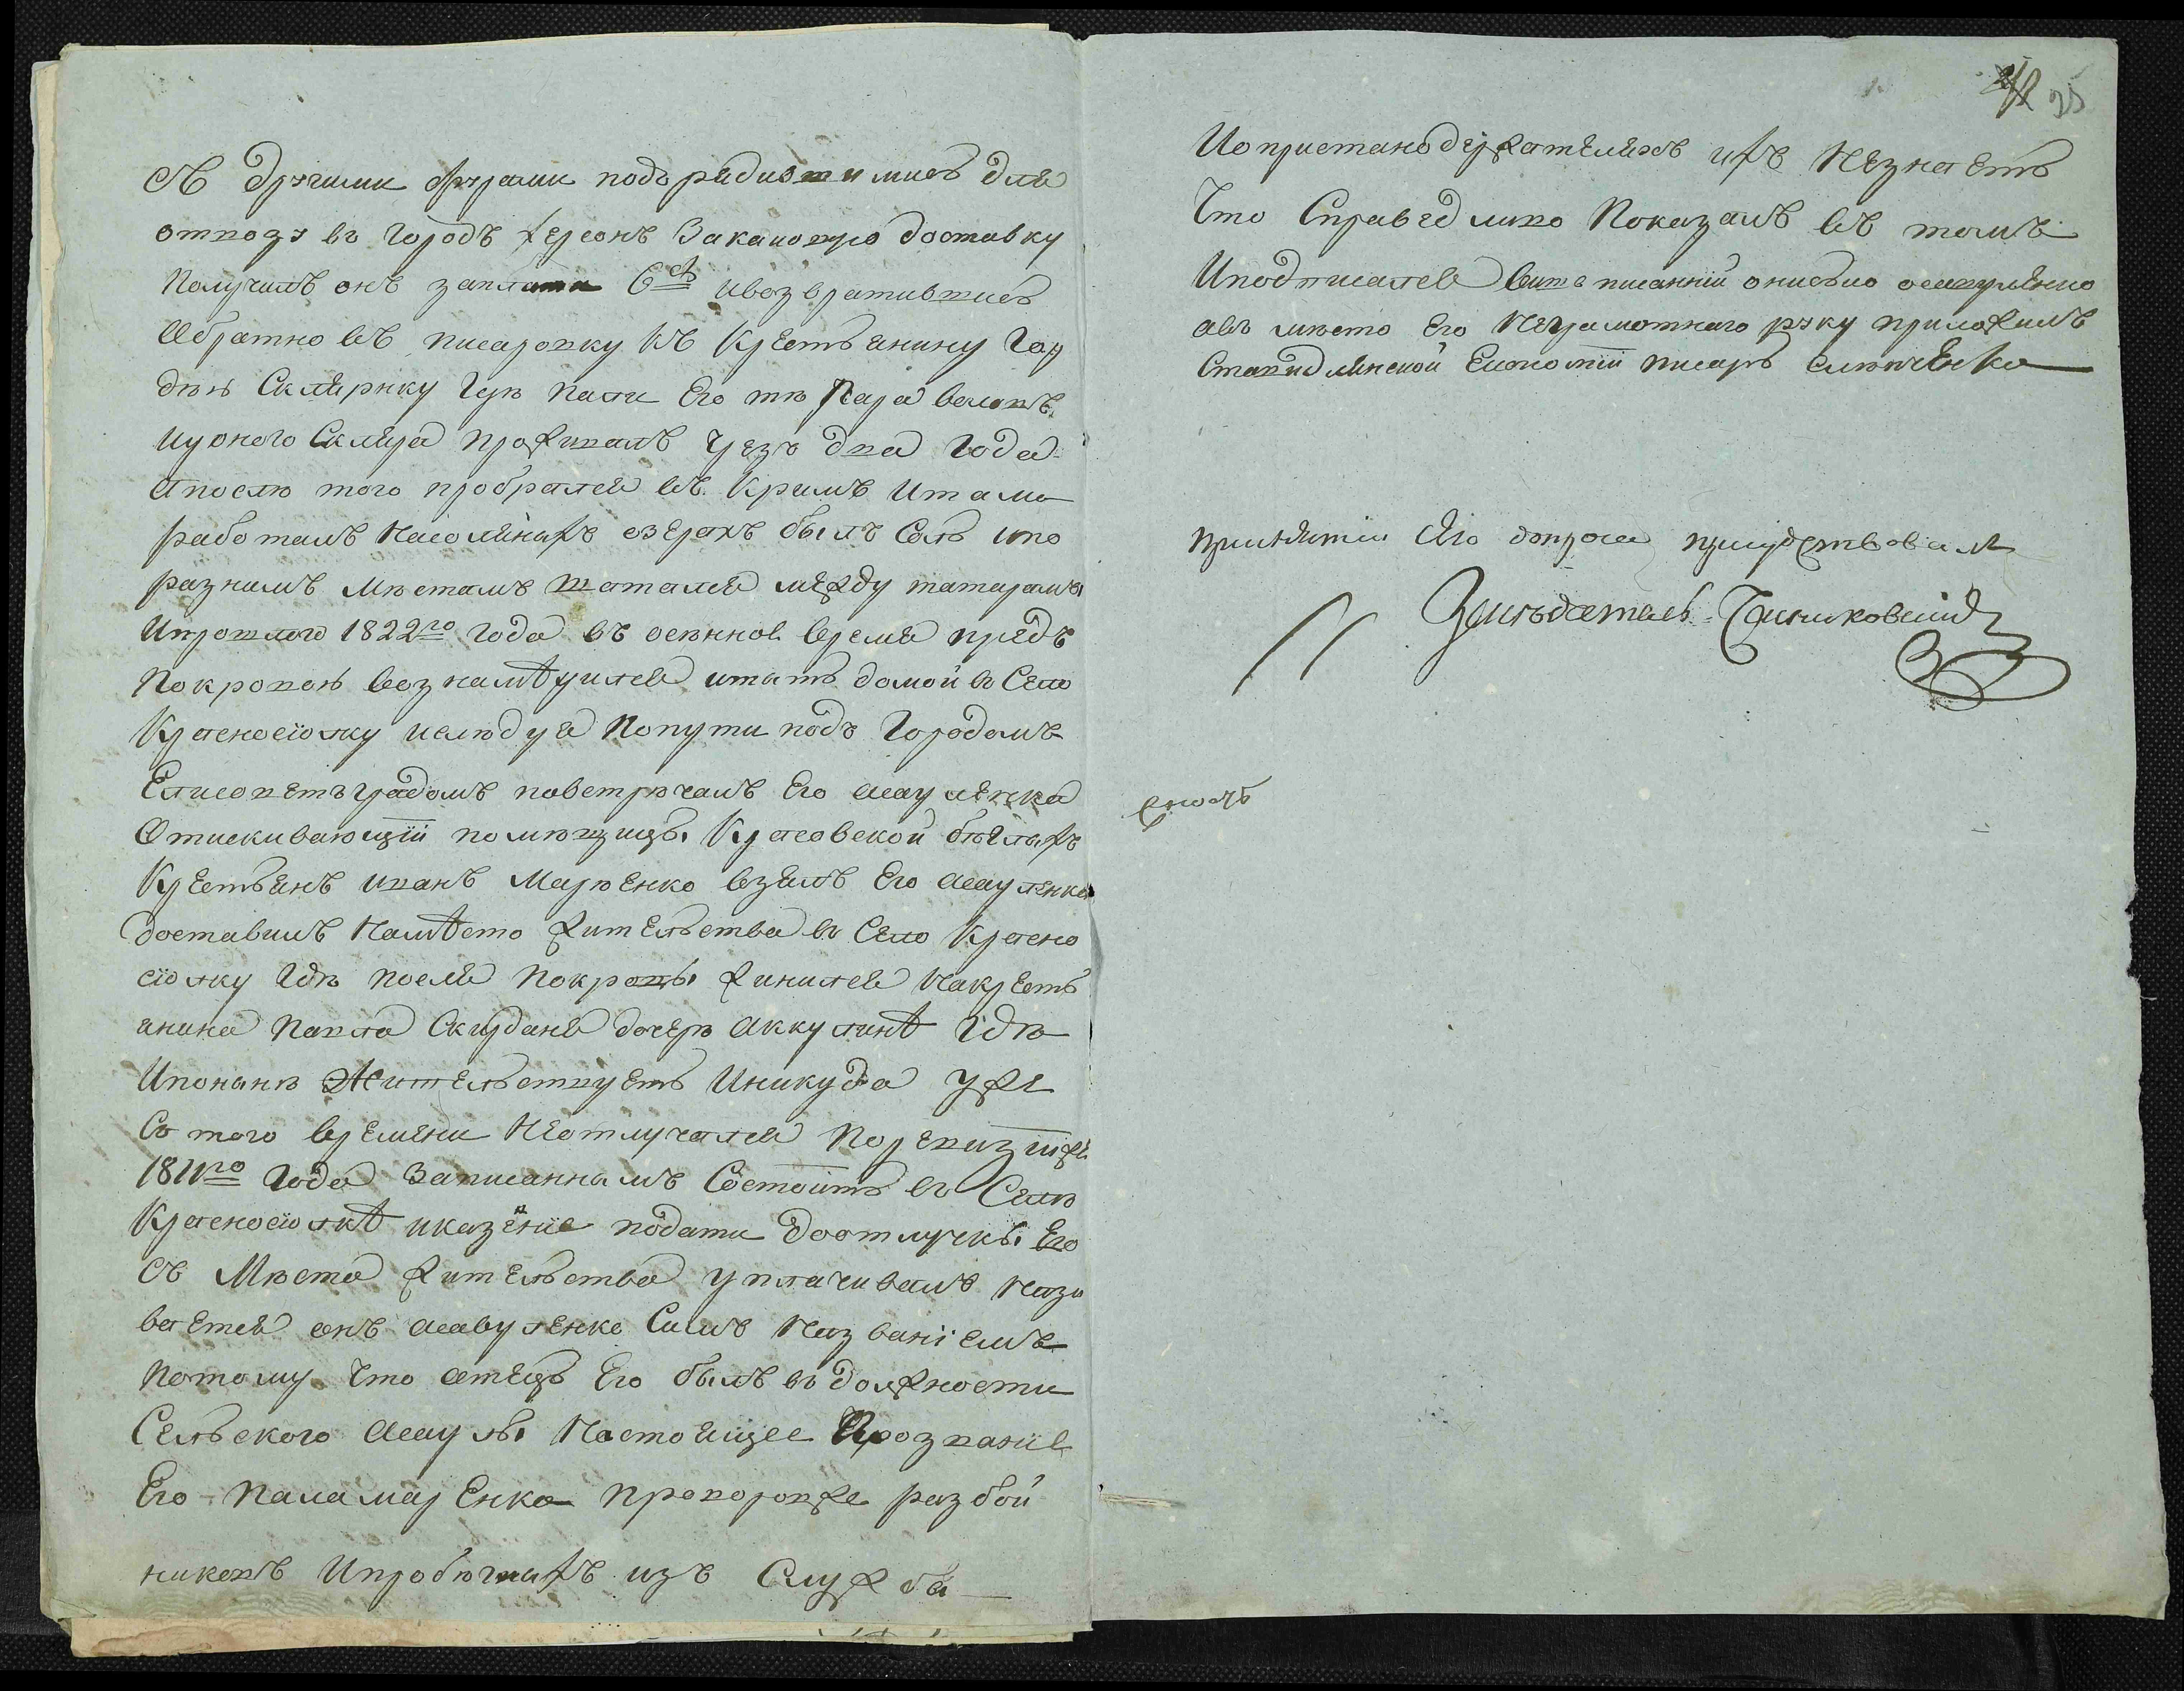 съ другими фурами подъ радившимись для
отвозу въ городъ Херсонъ За каковую доставку
Получилъ онъ заплати 6 ивозвратившись
Обратно въ писаровку къ Крестьянину Гор
дею Скляренку Где пали Его те Пара воловъ
иу оного Скляра проживалъ Чрезъ два Года
Апосле того пробрался въ Кримъ Итамо
работалъ Насолянихъ озерахъ былъ Соль ипо
разнимъ местамъ шатался между татарамы
Ипрошлого 1822го Года въ осенное время предъ
Покровою возънамѣрился итить домой въ Село
Красносіолку иследуя Попути подъ Городомъ
Елисаветъградомъ повстречалъ Его асауленка
Отискивающій помещицы Красовской беглыхъ
Крестьянъ иванъ Маренко взялъ Его асауленка
доставилъ Намѣсто жительства въ Село Красно
сіолку Где после Покровы женился Накресть
янина Павла Скирдана дочере Аккулинѣ Где
Ипонине Жительствуеть Иникуда уже
Со того времени Неотлучался Поревизіиже
1811го Года Записаннымъ Состоитъ въ Селе
Красносіолкѣ иказеніе подати доотлучкы Его
съ Места жительства уплачивалъ Нази
вается онъ асавуленко Симъ Названіемъ
Потому Что отецъ Его былъ въ должности
Сельского Асаулы Настоящее Прозваніе
Его Паламаренко проворовже разбой
никовъ Ипробеглихъ изъ Службы
35
Ио пристанодержателяхъ ихъ Незнаеть
Что Справедливо Показалъ въ томъ
Иподписался више писанній онисько осауленко
авъ место Его Неграмотнаго руку приложилъ
Ставидлянской Економіи писаръ
принятіи Сего допроса присудствовалъ
Заседатель